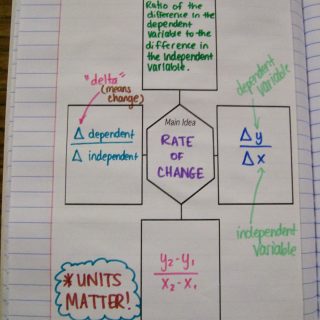 Ratio of the
difference in the
dependent
variable to the
difference in
the independent
variable.
"delta"
(means
change)
Δ dependent
Δ independent
Main Idea
RATE
OF
CHANGE
dependent
variable
Δy
Δx
independent
variable
y₂-y₁
x₂-x₁
*UNITS
MATTER!